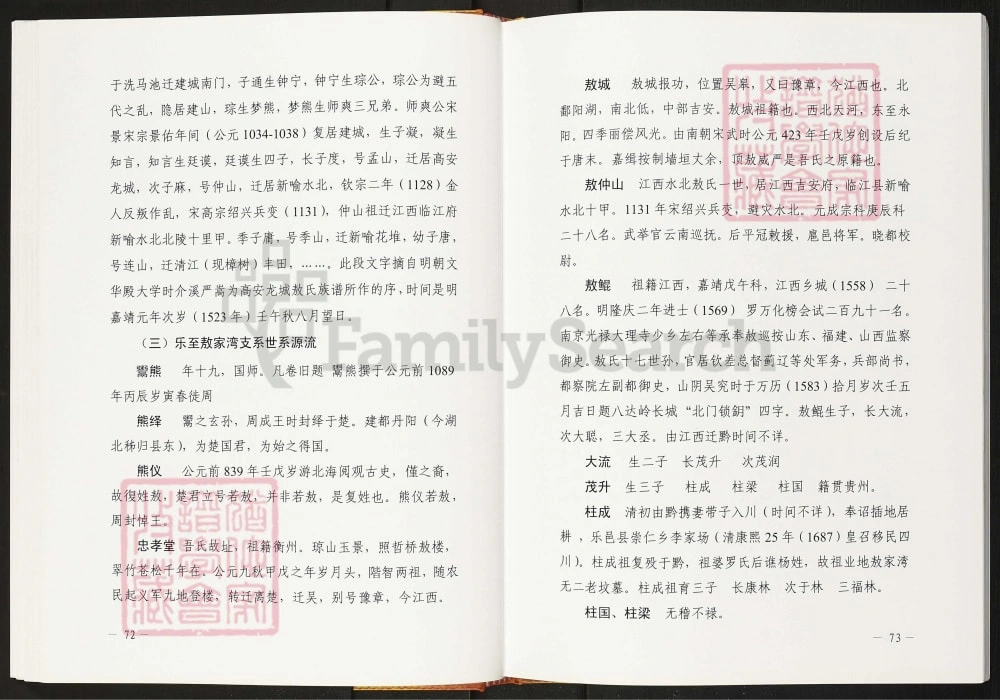 于洗马池迁建城南门，子通生钟宁，钟宁生琮公，琮公为避五
代之乱，隐居建山，琮生梦熊，梦熊生师爽三兄弟。师爽公宋
景宋景佑年间（公元 1034-1038）复居建城，生子凝，凝生
知言，知言生廷谟，廷谟生四子，长子度，号孟山，迁居高安
龙城，次子麻，号仲山，迁居新喻水北，钦宗二年（1128）金
人反叛作乱，宋高宗绍兴兵变（1131），仲山祖迁江西临江府
新喻水北北陵十里甲。季子庸，号季山，迁新喻花堆，幼子唐，
号连山，迁清江（现樟树）丰田，……。此段文字摘自明朝文
华殿大学时介溪严嵩为高安龙城敖氏族谱所作的序，时间是明
嘉靖元年次岁（1523 年）壬午秋八月望日。
（三）乐至敖家湾支系世系源流
鬻熊 年十九，国师。凡卷旧题 鬻熊撰于公元前 1089
年丙辰岁寅春徙周
熊绎 鬻之玄孙，周成王时封绎于楚。建都丹阳（今湖
北秭归县东），为楚国君，为始之得国。
熊仪 公元前 839 年壬戌岁游北海阅观古史，僅之裔，
故復姓敖，楚君立号若敖，并非若敖，是复姓也。熊仪若敖，
周封悼王。
忠孝堂 吾氏故址，祖籍衡州。琼山玉景，照哲桥敖楼，
翠竹苍松千年在。公元九秋甲戊之年岁月头，階智两祖，随农
民起义军九地登楼，转迁离楚，迁吴，别号豫章，今江西。
— 72 —
敖城 敖城报功，位置吴皋，又曰豫章，今江西也。北
鄱阳湖，南北低，中部吉安。敖城祖籍也。西北天河，东至永
阳。四季丽偿风光。由南朝宋武时公元 423 年壬戊岁创设后纪
于唐末。嘉缉按制墙垣丈余，顶敖威严是吾氏之原籍也。
敖仲山 江西水北敖氏一世，居江西吉安府，临江县新喻
水北十甲。1131 年宋绍兴兵变，避灾水北。元成宗科庚辰科
二十八名。武举官云南巡抚。后平冠敕援，扈邑将军。晓都校
尉。
敖鲲 祖籍江西，嘉靖戊午科，江西乡城（1558） 二十
八名。明隆庆二年进士（1569） 罗万化榜会试二百九十一名。
南京光禄大理寺少乡左右等承奉敕巡按山东、福建、山西监察
御史。敖氏十七世孙，官居钦差总督蓟辽等处军务，兵部尚书，
都察院左副都御史，山阴吴兖时于万历（1583）拾月岁次壬五
月吉日题八达岭长城“北门锁鈅”四字。敖鲲生子，长大流，
次大聪，三大丞。由江西迁黔时间不详。
大流 生二子 长茂升 次茂润
茂升 生三子 柱成 柱梁 柱国 籍贯贵州。
柱成 清初由黔携妻带子入川（时间不详），奉诏插地居
耕 ，乐邑县崇仁乡李家场（清康熙 25 年（1687）皇召移民四
川）。柱成祖复殁于黔，祖婆罗氏后谁杨姓，故祖业地敖家湾
无二老坟墓。柱成祖育三子 长康林 次于林 三福林。
柱国、柱梁 无稽不禄。
— 73 —
FamilySearch